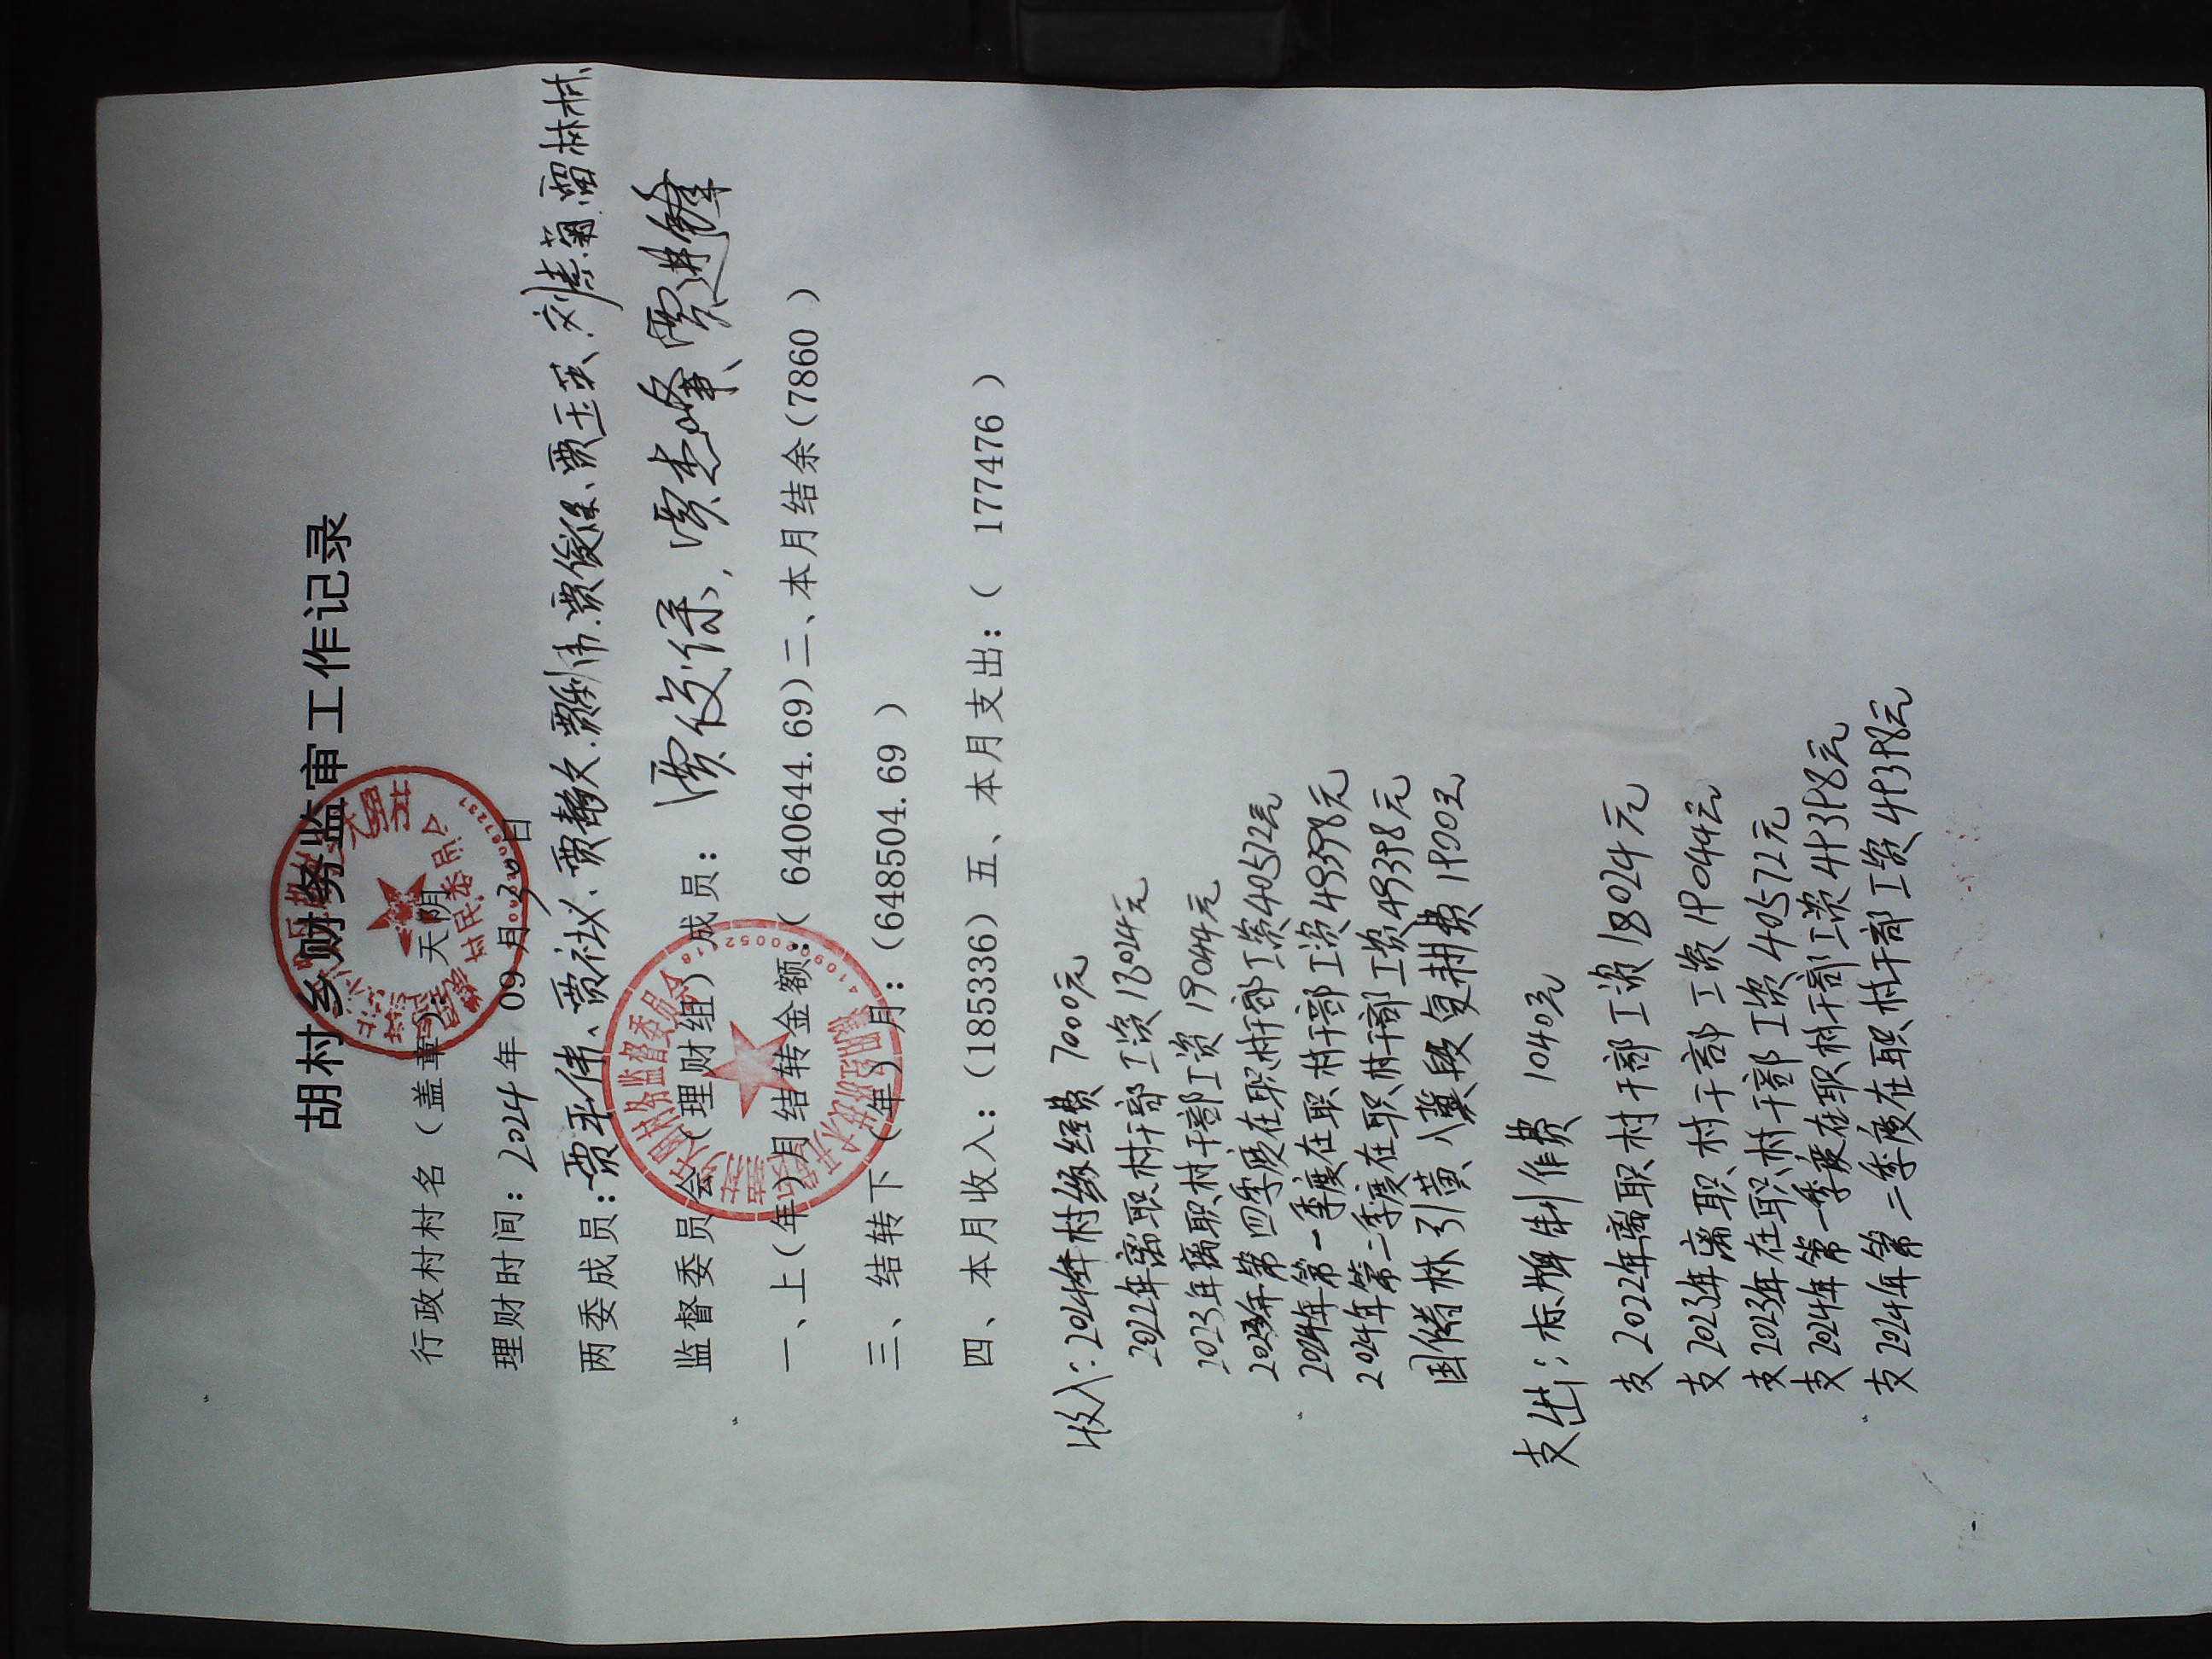 胡村乡财务监审工作记录
行政村村名（盖章）：天阴
理财时间：2024年09月30日
两委成员：贾平伟、贾社义、贾静欠、贾利伟、贾俊保、贾玉英、刘素菊、雷林村、
监督委员会（理财组）成员：贾俊保、贾志峰、贾进锋
一、上（年）月结转金额：（640644.69）二、本月结余（7860）
三、结转下（年）月：（648504.69）
四、本月收入：（185336）五、本月支出：（177476）
收入：2024年村级经费 7000元
2022年离职村干部工资18024元
2023年离职村干部工资19044元
2023年第四季度在职村干部工资40572元
2024年第一季度在职村干部工资49398元
2024年第二季度在职村干部工资49398元
国储林引黄入冀段复耕费1900元
支出：标牌制作费 1040元
支2022年离职村干部工资18024元
支2023年离职村干部工资19044元
支2023年在职村干部工资40572元
支2024年第一季度在职村干部工资49398元
支2024年第二季度在职村干部工资49398元